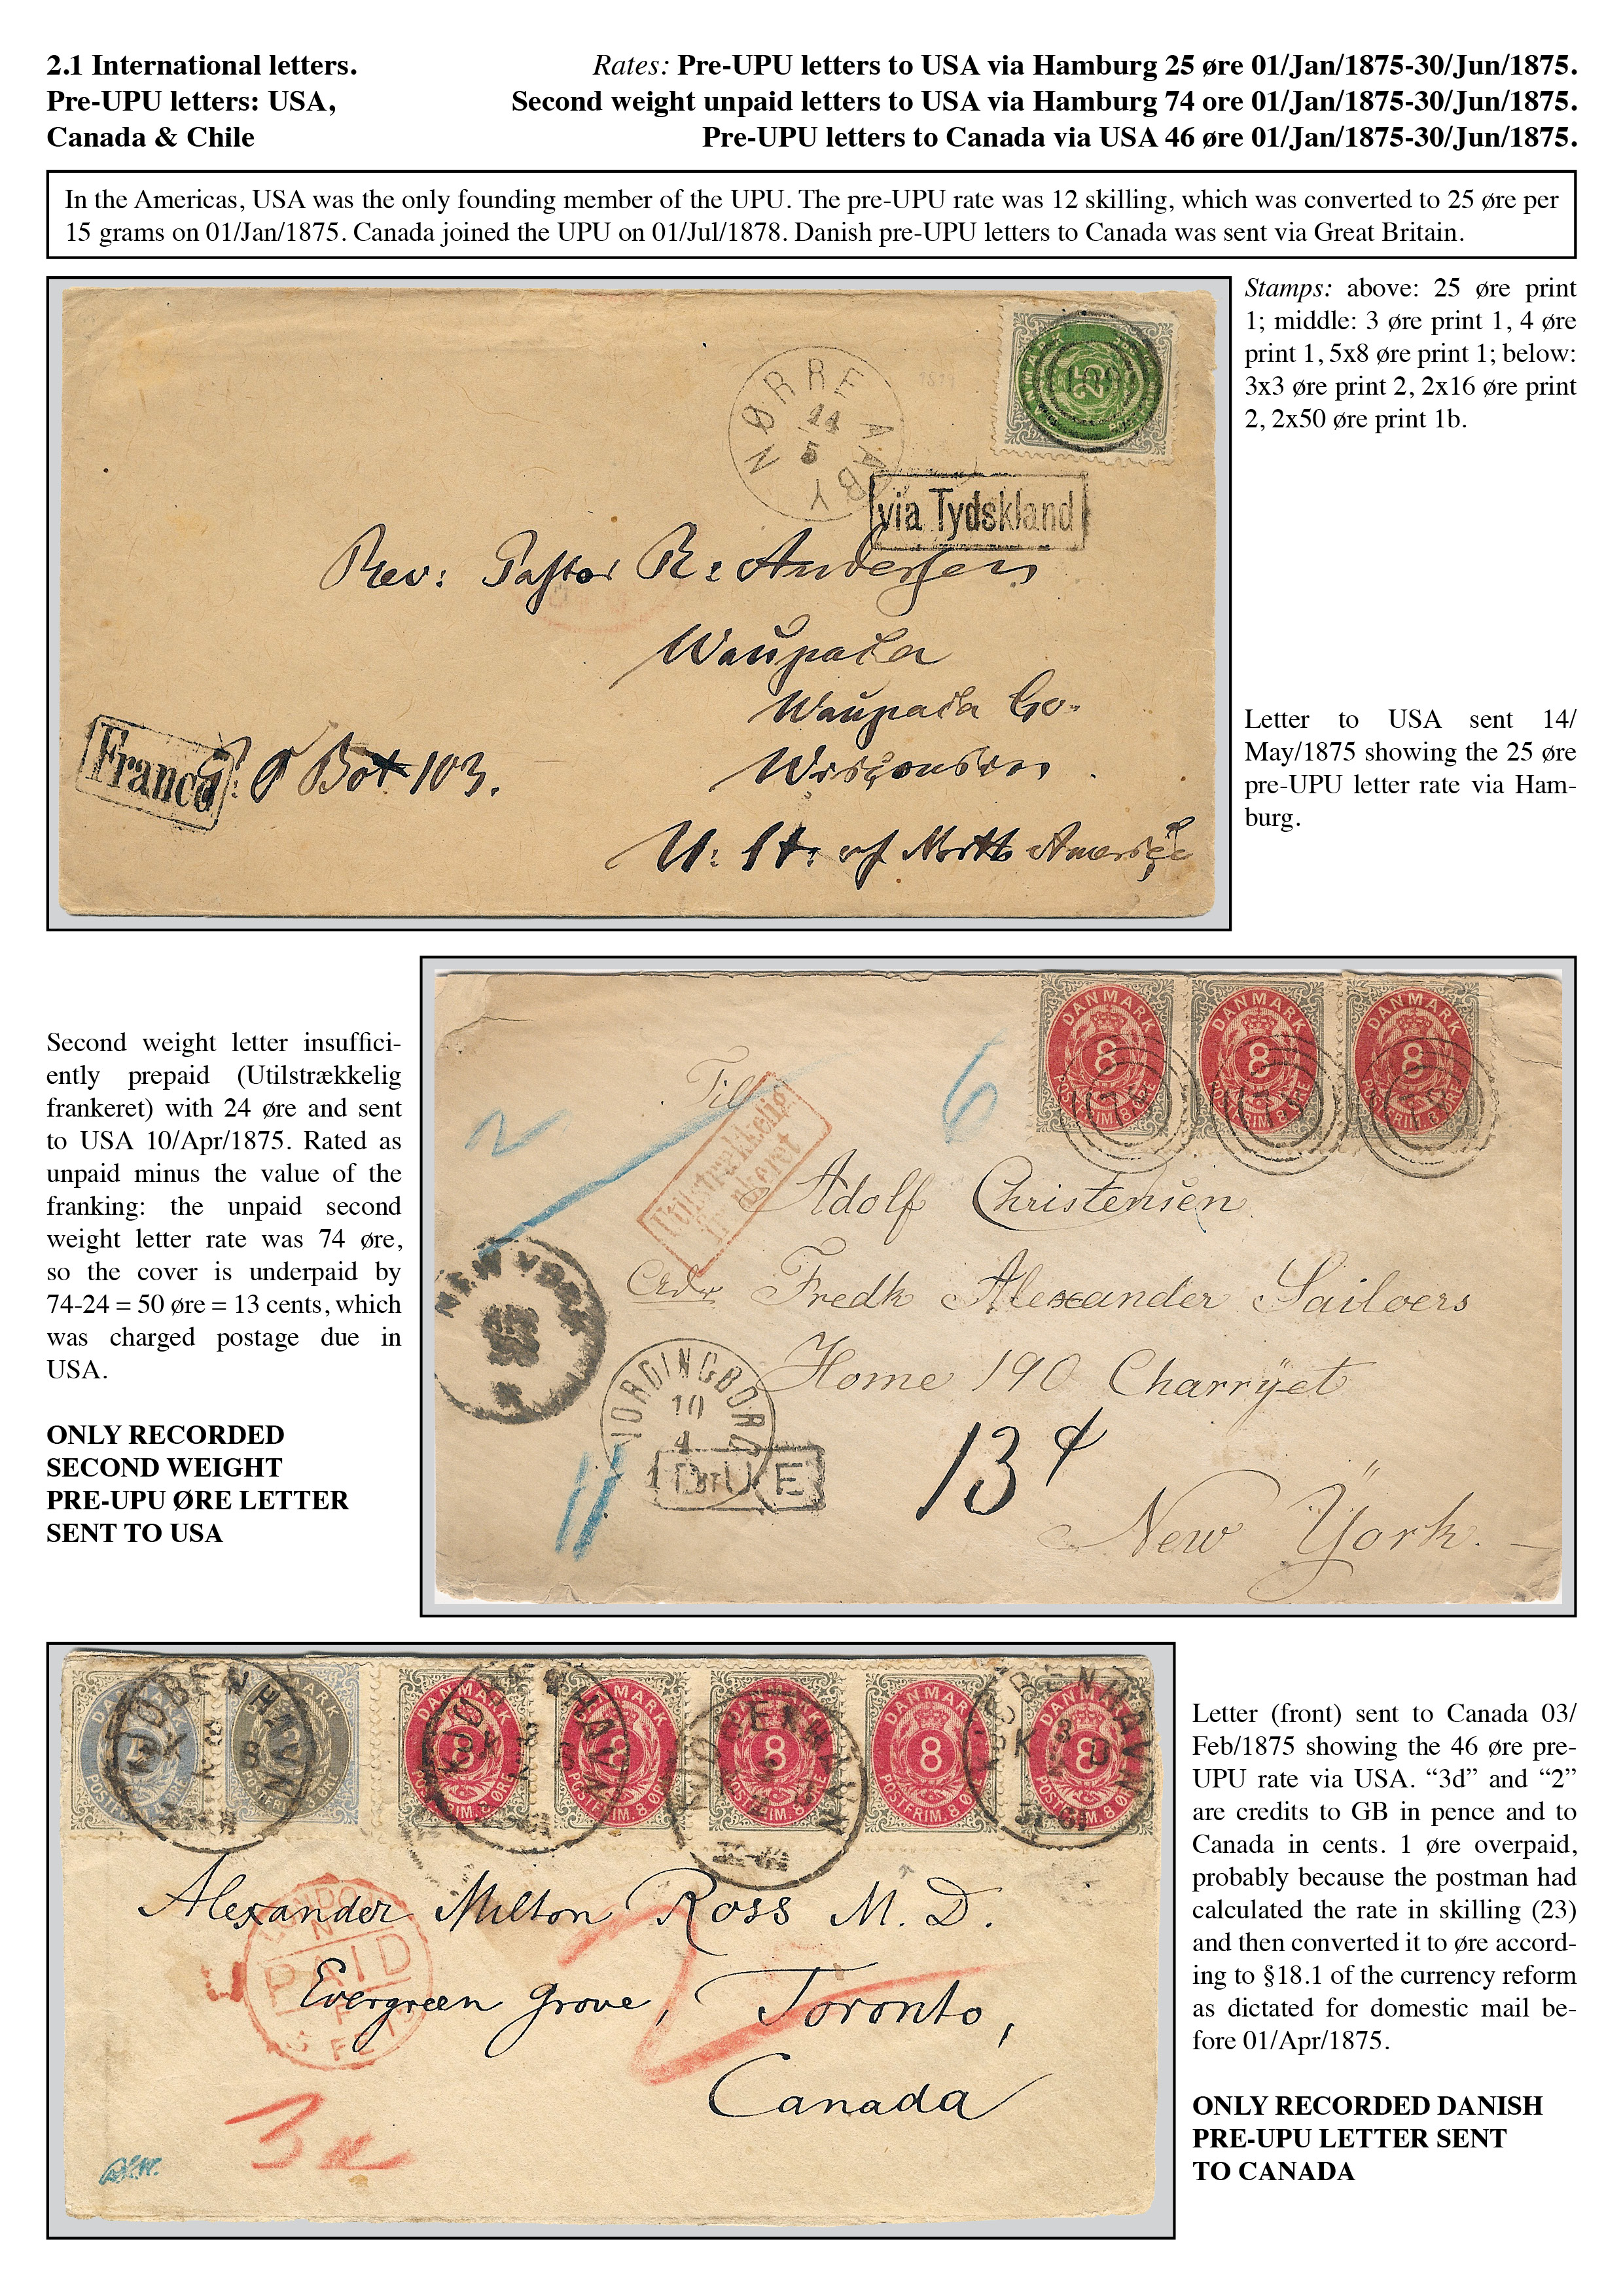 2.1 International letters.
Pre-UPU letters: USA,
Canada & Chile
Rates: Pre-UPU letters to USA via Hamburg 25 øre 01/Jan/1875-30/Jun/1875.
Second weight unpaid letters to USA via Hamburg 74 ore 01/Jan/1875-30/Jun/1875.
Pre-UPU letters to Canada via USA 46 øre 01/Jan/1875-30/Jun/1875.
In the Americas, USA was the only founding member of the UPU. The pre-UPU rate was 12 skilling, which was converted to 25 øre per
15 grams on 01/Jan/1875. Canada joined the UPU on 01/Jul/1878. Danish pre-UPU letters to Canada was sent via Great Britain.
Stamps: above: 25 øre print
1; middle: 3 øre print 1, 4 øre
print 1, 5x8 øre print 1; below:
3x3 øre print 2, 2x16 øre print
2, 2x50 øre print 1b.
NØRRE AABY
5
via Tydskland
Rev: Pastor R: Andersen
Waupaca
Waupaca Co.
Wisconsin
Franco
P. O Box 103.
U: St: of North America
Letter to USA sent 14/
May/1875 showing the 25 øre
pre-UPU letter rate via Ham-
burg.
Second weight letter insuffici-
ently prepaid (Utilstrækkelig
frankeret) with 24 øre and sent
to USA 10/Apr/1875. Rated as
unpaid minus the value of the
franking: the unpaid second
weight letter rate was 74 øre,
so the cover is underpaid by
74-24 = 50 øre = 13 cents, which
was charged postage due in
USA.
ONLY RECORDED
SECOND WEIGHT
PRE-UPU ØRE LETTER
SENT TO USA
DANMARK 8 POSTFRIM. 8 ØRE
DANMARK 8 POSTFRIM. 8 ØRE
DANMARK 8 POSTFRIM. 8 ØRE
2
6
Til
Utilstrækkelig
frankeret
Adolf Christensen
Adr Fredk Alexander Sailoers
Home 190 Charryet
NEW YORK
VORDINGBORG
10
4
DUE
11
13 ¢
New York.
KJØBENHAVN
DANMARK 8 POSTFRIM. 8 ØRE
DANMARK 8 POSTFRIM. 8 ØRE
DANMARK 8 POSTFRIM. 8 ØRE
DANMARK 8 POSTFRIM. 8 ØRE
DANMARK 8 POSTFRIM. 8 ØRE
Alexander Milton Ross M. D.
Evergreen Grove, Toronto,
Canada
LONDON
PAID
2
3d
Letter (front) sent to Canada 03/
Feb/1875 showing the 46 øre pre-
UPU rate via USA. “3d” and “2”
are credits to GB in pence and to
Canada in cents. 1 øre overpaid,
probably because the postman had
calculated the rate in skilling (23)
and then converted it to øre accord-
ing to §18.1 of the currency reform
as dictated for domestic mail be-
fore 01/Apr/1875.
ONLY RECORDED DANISH
PRE-UPU LETTER SENT
TO CANADA